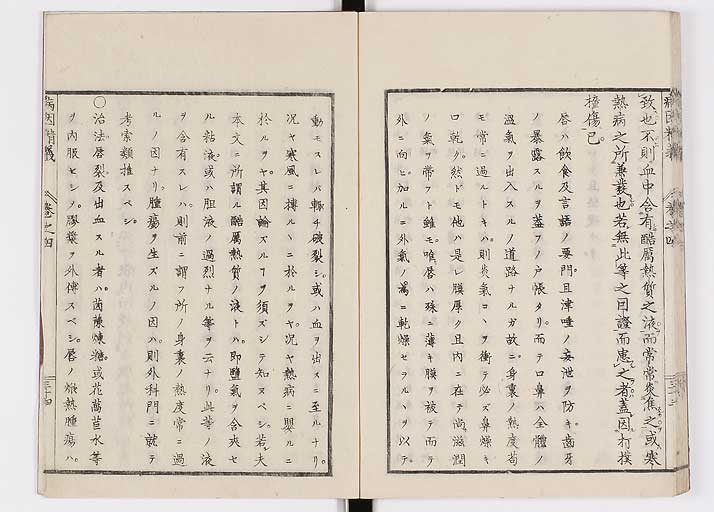 致也不則血中含有酷厲熱質之液而常常焦之或寒
熱病之所兼發也若無此等之因證而患之者蓋因打撲
撞傷已
唇ハ飲食及言語ノ要門且津唾ノ妄泄ヲ防キ齒牙
ノ暴露スルヲ蓋フノ戸帳タリ而テ口鼻ハ全體ノ
温氣ヲ出入スルノ道路ナルガ故ニ身裏ノ熱度苟
モ常ニ過ルトキハ則炎氣コヽヲ衝テ必ズ鼻燥キ
口乾ク然トモ他ハ是レ膜厚ク且内ニ在テ尚滋潤
ノ氣ヲ帶フト雖モ唯唇ハ殊ニ薄キ膜ヲ被テ而テ
外ニ向ヒ加ルニ外氣ノ為ニ乾燥セラルヽヲ以テ
動モスレバ輒チ破裂シ或ハ血ヲ出スニ至ルナリ
況ヤ寒風ニ摶ルヽニ於ルヲヤ況ヤ熱病ニ嬰ルニ
於ルヲヤ其因論ズルヿヲ須ズシテ知スベシ若夫
本文ニ所謂ル酷厲熱質ノ液トハ即鹽氣ヲ合夾セ
ル粘液或ハ胆液ノ過烈ナル等ヲ云ナリ此等ノ液
ヲ含有スレハ則前ニ謂フ所ノ身裏ノ熱度常ニ過
ルノ因ナリ腫瘍ヲ生ズルノ因ハ則外科門ニ就テ
考索類推スベシ
○治法唇裂及出血スル者ハ茵蔯煉糖或花萵苣水等
ヲ内服セシメ膠嚢ヲ外傅スベシ唇ノ焮熱腫瘍ハ
病因精義
卷之四
三十四